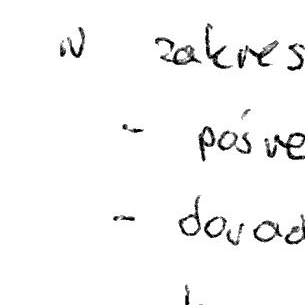 W zakres
- pośre
- dorad